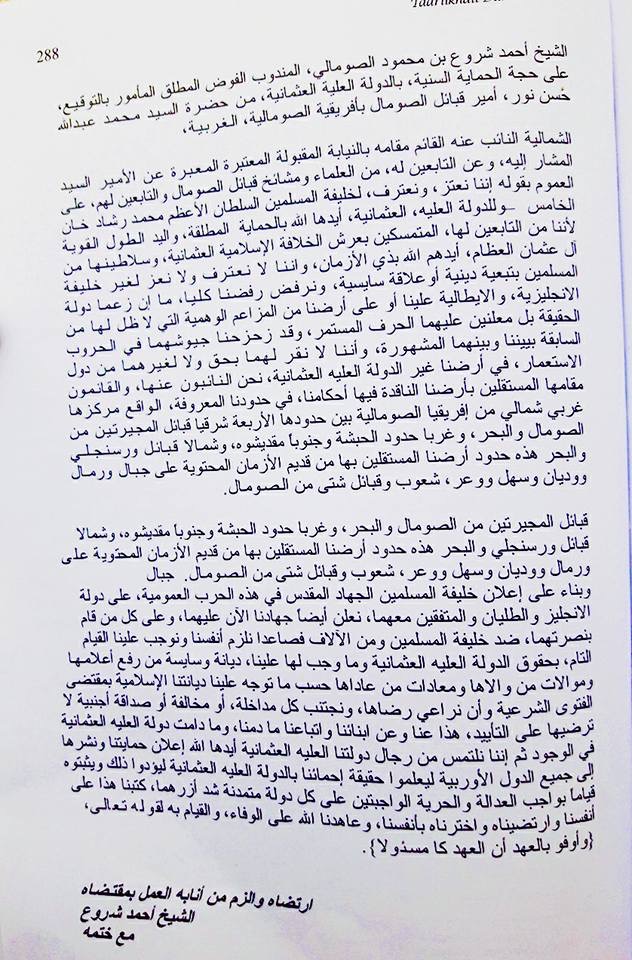 Taariikhdii
288
الشيخ أحمد شروع بن محمود الصومالي، المندوب الفوض المطلق المأمور بالتوقيع،
على حجة الحماية السنية، بالدولة العلية العثمانية، من حضرة السيد محمد عبدالله
حُسن نور، أمير قبائل الصومال بأفريقية الصومالية، الغربية،
الشمالية النائب عنه القائم مقامه بالنيابة المقبولة المعتبرة المعبرة عن الأمير السيد
المشار إليه، وعن التابعين له، من العلماء ومشائخ قبائل الصومال والتابعين لهم، على
العموم بقوله إننا نعتز، ونعترف، لخليفة المسلمين السلطان الأعظم محمد رشاد خان
الخامس وللدولة العليه، العثمانية، أيدها الله بالحماية المطلقة، واليد الطول القوية
لأننا من التابعين لها، المتمسكين بعرش الخلافة الإسلامية العثمانية، وسلاطينها من
آل عثمان العظام، أيدهم الله بذي الأزمان، واننا لا نعترف ولا نعز لغير خليفة
المسلمين بتبعية دينية أو علاقة سايسية، ونرفض رفضنا كليا، ما إن زعما دولة
الانجليزية، والايطالية علينا أو على أرضنا من المزاعم الوهمية التي لا ظل لها من
الحقيقة بل معلنين عليهما الحرف المستمر، وقد زحزحنا جيوشهما في الحروب
السابقة بييننا وبينهما المشهورة، وأننا لا نقر لهما بحق ولا لغيرهما من دول
الاستعمار، في أرضنا غير الدولة العليه العثمانية، نحن النائبون عنها، والقائمون
مقامها المستقلين بأرضنا الناقدة فيها أحكامنا، في حدودنا المعروفة، الواقع مركزها
غربي شمالي من إفريقيا الصومالية بين حدودها الأربعة شرقيا قبائل المجيرتين من
الصومال والبحر، وغربا حدود الحبشة وجنوباً مقديشوه، وشمالا قبائل ورسنجلي
والبحر هذه حدود أرضنا المستقلين بها من قديم الأزمان المحتوية على جبال ورمال
ووديان وسهل ووعر، شعوب وقبائل شتى من الصومال.
قبائل المجيرتين من الصومال والبحر، وغربا حدود الحبشة وجنوباً مقديشوه، وشمالا
قبائل ورسنجلي والبحر هذه حدود أرضنا المستقلين بها من قديم الأزمان المحتوية على
ورمال ووديان وسهل ووعر، شعوب وقبائل شتى من الصومال. جبال
وبناء على إعلان خليفة المسلمين الجهاد المقدس في هذه الحرب العمومية، على دولة
الانجليز والطليان والمتفقين معهما، نعلن أيضاً جهادنا الآن عليهما، وعلى كل من قام
بنصرتهما، ضد خليفة المسلمين ومن الآلاف فصاعدا نلزم أنفسنا ونوجب علينا القيام
التام، بحقوق الدولة العليه العثمانية وما وجب لها علينا، ديانة وسايسة من رفع أعلامها
وموالات من والاها ومعادات من عاداها حسب ما توجه علينا ديانتنا الإسلامية بمقتضى
الفتوى الشرعية وأن نراعي رضاها، ونجتنب كل مداخلة، أو مخالفة أو صداقة أجنبية لا
ترضيها على التأييد، هذا عنا وعن ابنائنا واتباعنا ما دمنا، وما دامت دولة العليه العثمانية
في الوجود ثم إننا نلتمس من رجال دولتنا العليه العثمانية أيدها الله إعلان حمايتنا ونشرها
إلى جميع الدول الأوربية ليعلموا حقيقة إحمائنا بالدولة العليه العثمانية ليؤدوا ذلك ويثبتوه
قياما بواجب العدالة والحرية الواجبتين على كل دولة متمدنة شد أزرهما، كتبنا هذا على
أنفسنا وارتضيناه واخترناه بأنفسنا، وعاهدنا الله على الوفاء، والقيام به لقوله تعالى،
{وأوفو بالعهد أن العهد كا مسئولا}.
ارتضاه والزم من أنابه العمل بمقتضاه
الشيخ أحمد شروع
مع ختمه